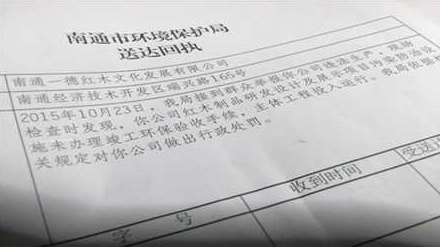 南通市环境保护局
送达回执
南通一德红木文化发展有限公司
南通经济技术开发区瑞兴路165号
2015年10月23日，我局接到群众举报你公司违法生产，现场
检查时发现，你公司红木制品研发设计及展示项目污染防治设
施未办理竣工环保验收手续，主体工程投入运行。我局依照相
关规定对你公司做出行政处罚。
字 号
收到时间
受送